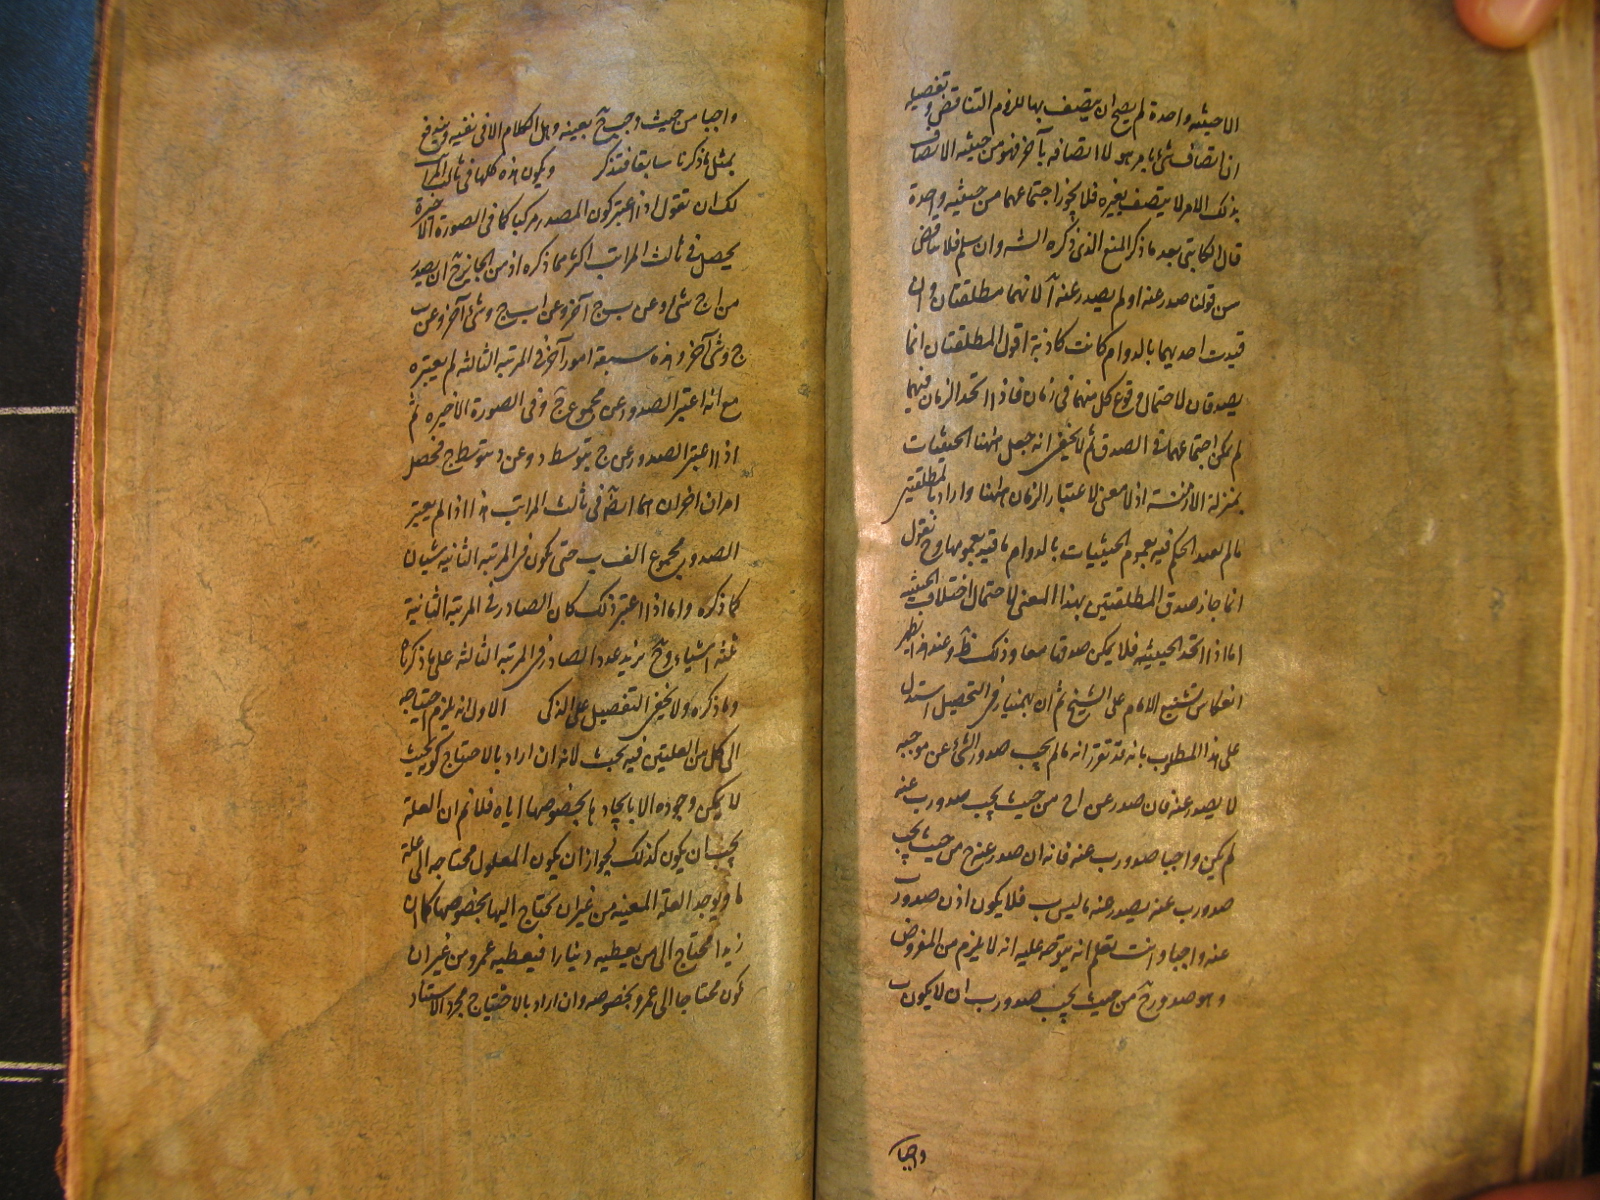 الا حيثية واحدة لم يصح ان يتصف بها للزوم التناقض وتفصيله
ان اتصاف شئ بامر هو لا اتصافه بآخر فهو من حيثية الاتصاف
بذلك الامر لا يتصف بغيره فلا يجوز اجتماعهما من حيثية واحدة
قال الكاتبى بعد ما ذكر المنع الذى ذكره الشـ وان سلم فلا تناقض
من قولنا صدر عنه ا ولم يصدر عنه ا لانهما مطلقتان وان
قيدت احديهما بالدوام كانت كاذبة اقول المطلقتان انما
يصدقان لاحتمال وقوع كل منهما فى زمان فاذا اتحد الزمان فيهما
لم يمكن اجتماعهما فى الصدق ثم لا يخفى انه جعل ههنا الحيثيات
بمنزلة الازمنة اذ لا معنى لاعتبار الزمان ههنا واراد بالمطلقتين
ما لم يقيد الحكم فيه بعموم الحيثيات بالدوام ما قيد بعمومها وح نقول
انما جاز صدق المطلقتين بهذا المعنى لاحتمال اختلاف الحيثية
اما اذا اتحد الحيثية فلا يمكن صدقها معا وذلك ظ وعند هذا يظهر
انعكاس تشنيع الامام على الشيخ ثم ان بهمنيار فى التحصيل استدل
على هذا المطلوب بانه قد تقرر انه ما لم يجب صدور الشئ عن موجبه
لا يصدر عنه فان صدر عن ا ج من حيث يجب صدور ب عنه
لم يكن واجبا صدور ب عنه فانه ان صدر عنه ج من حيث يجب
صدور ب عنه يصدر عنه ما ليس ب فلا يكون اذن صدور ب
عنه واجبا وانت تعلم انه يتوجه عليه انه لا يلزم من المفروض
وهو صدور ج من حيث يجب صدور ب ان لا يكون ب
واجبا
واجبا من حيث وجب ج بعينه وهل الكلام الا فى نفيه
بمثل ما ذكرنا سابقا فتذكر ويكون هذه كلها فى ثالث المراتب
لك ان تقول اذا اعتبر كون المصدر مركبا كما فى الصورة الاخيرة
يحصل فى ثالث المراتب اكثر مما ذكره اذ من الجائز ح ان يصدر
من ا ج شئ وعن ب ج آخر وعن ا ب ج وشئ آخر وعن ب
ج وشئ آخر وهذه سبعة امور آخر فى المرتبة الثالثة لم يعتبره
مع انه اعتبر الصدور عن مجموع ج وفى الصورة الاخيره ثم
اذا اعتبر الصدور عن ج بتوسط د وعن د بتوسط ج فحصل
امران اخران هما ايضا فى ثالث المراتب هذا اذا لم يعتبر
الصدور مجموع الف ب حتى يكون فى المرتبة الثانية شيئان
كما ذكره واما اذا اعتبر ذلك كان الصادر فى المرتبة الثانية
ثلثة اشياء وح يزيد عدد الصادر فى المرتبة الثالثة على ما ذكرنا
وما ذكره ولا يخفى التفصيل على الذكى الاول انه يلزم احتياجه
الى كل من العلتين فيه بحث لانه ان اراد بالاحتياج كونه بحيث
لا يمكن وجوده الا بايجادها بخصوصها اياه فلا نم ان العلة
يجب ان يكون كذلك لجواز ان يكون المعلول محتاجا الى علة
ما ويوجد العلة المعينه من غير ان يحتاج اليها بخصوصها كما ان
زيدا محتاج الى من يعطيه دينارا فيعطيه عمرو من غير ان
يكون محتاجا الى عمرو بخصوصه وان اراد بالاحتياج مجرد الاستناد